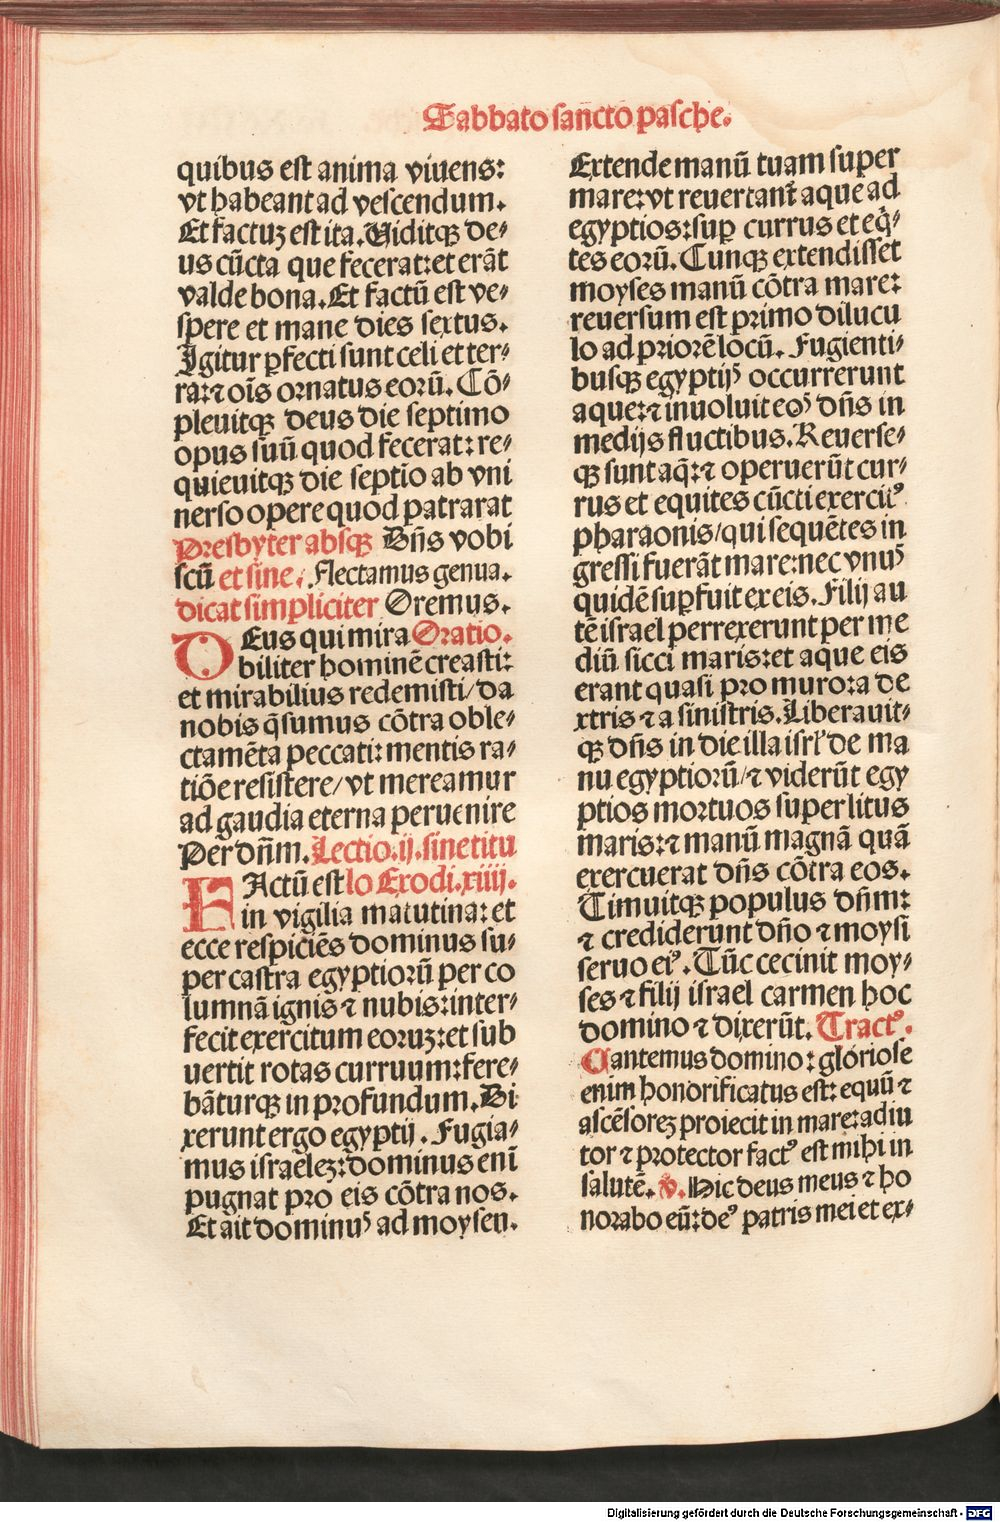 Sabbato sancto pasche.
quibus est anima viuens:
vt habeant ad vescendum.
Et factuꝫ est ita. Uiditqꝫ de⸗
us cūcta que fecerat: et erāt
valde bona. Et factū est ve⸗
spere et mane dies sextus.
Igitur ꝑfecti sunt celi et ter⸗
ra: ⁊ oīs ornatus eorū. Cō⸗
pleuitqꝫ deus die septimo
opus suū quod fecerat: re⸗
quieuitqꝫ die septīo ab vni
uerso opere quod patrarat
Presbyter absqꝫ Dn̄s vobi
scū et sine. Flectamus genua.
dicat simpliciter Oremus.
DEus qui mira Oratio.
biliter hominē creasti:
et mirabilius redemisti/ da
nobis q̄sumus cōtra oble⸗
ctamēta peccati: mentis ra⸗
tiōe resistere/ vt mereamur
ad gaudia eterna peruenire
Per dn̄m. Lectio .ij. sine titu
FActū est lo Exodi .xiiij.
in vigilia matutina: et
ecce respiciēs dominus su⸗
per castra egyptiorū per co
lumnā ignis ⁊ nubis: inter⸗
fecit exercitum eoruꝫ: et sub
uertit rotas curruum: fere⸗
bāturqꝫ in profundum. Di
xerunt ergo egyptij. Fugia⸗
mus israelez: dominus enī
pugnat pro eis cōtra nos.
Et ait dominuꝰ ad moysen.
Extende manū tuam super
mare: vt reuertant᷑ aque ad
egyptios: suꝑ currus et eq̇⸗
tes eorū. Cunqꝫ extendisset
moyses manū cōtra mare:
reuersum est primo dilucu
lo ad priorē locū. Fugienti⸗
busqꝫ egyptijꝰ occurrerunt
aque: ⁊ inuoluit eoꝰ dn̄s in
medijs fluctibus. Reuerse⸗
qꝫ sunt aq̄: ⁊ operuerūt cur⸗
rus et equites cūcti exercitꝰ
pharaonis/ qui sequētes in
gressi fuerāt mare: nec vnuꝰ
quidē suꝑfuit ex eis. Filij au
tē israel perrexerunt per me
diū sicci maris: et aque eis
erant quasi pro muro: a de
xtris ⁊ a sinistris. Liberauit⸗
qꝫ dn̄s in die illa isrl̓ de ma
nu egyptiorū/ ⁊ viderūt egy
ptios mortuos super litus
maris: ⁊ manū magnā quā
exercuerat dn̄s cōtra eos.
Timuitqꝫ populus dn̄m:
⁊ crediderunt dn̄o ⁊ moysi
seruo eiꝰ. Tūc cecinit moy⸗
ses ⁊ filij israel carmen hoc
domino ⁊ dixerūt. Tractꝰ.
Cantemus domino: gloriose
enim honorificatus est: equū ⁊
ascēsorez proiecit in mare: adiu
tor ⁊ protector factꝰ est mihi in
salutē. ℣. Hic deus meus ⁊ ho
norabo eū: deꝰ patris mei et ex⸗
Digitalisierung gefördert durch die Deutsche Forschungsgemeinschaft - DFG